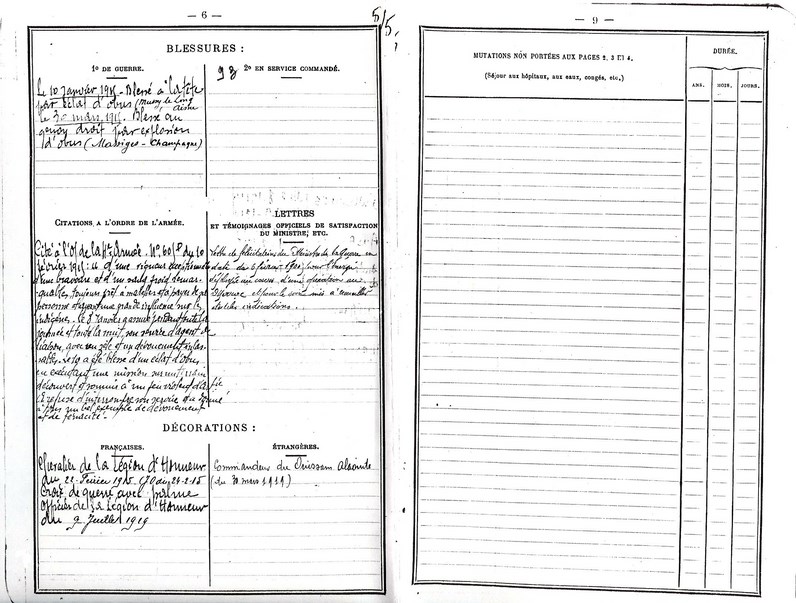 — 6 —
5/5.
BLESSURES :
1º DE GUERRE.
Le 10 Janvier 1915 - Blessé à la tête
par éclat d'obus (Mussy le Long
Aisne
le 30 mars 1915. Blessé au
genou droit par explosion
d'obus (Massiges - Champagne)
93
2º EN SERVICE COMMANDÉ.
CITATIONS A L'ORDRE DE L'ARMÉE.
Cité à l'O/ de la Armée. Nº 60 du 10
février 1915: d'une vigueur
d'une bravoure et d'un sang froid remar-
quables, toujours prêt à payer de sa
personne ayant une grande influence sur les
indigènes. Le 8 Janvier a assuré pendant toute la
journée et toute la nuit, son service d'agent de
liaison, avec un zèle et un dévouement inlas-
sables. Le 10 a été blessé d'un éclat d'obus
en exécutant une mission sur un terrain
découvert et soumis à un feu violent d'artillerie
a refusé d'interrompre son service et a donné
à tous un bel exemple de dévouement
et de ténacité.
LETTRES
ET TÉMOIGNAGES OFFICIELS DE SATISFACTION
DU MINISTRE, ETC.
Lettre de félicitations du Ministre de la Guerre en
date du 6 février pour l'énergie
déployée au cours d'une opération au
et pour le soin mis à
indications.
DÉCORATIONS :
FRANÇAISES.
Chevalier de la Légion d'Honneur
du 22 Février 1915 24-2-15
Croix de guerre avec palme
Officier de la Légion d'Honneur
du 9 Juillet 1919
ÉTRANGÈRES.
Commandeur du Ouissam Alaouite
(du 30 mars 1919)
— 9 —
MUTATIONS NON PORTÉES AUX PAGES 2, 3 ET 4.
(Séjour aux hôpitaux, aux eaux, congés, etc.)
DURÉE.
ANS.
MOIS.
JOURS.